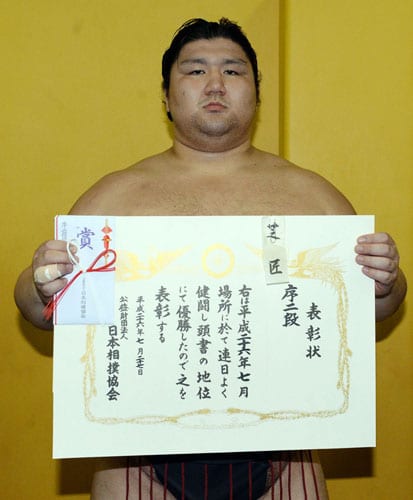 表彰状
序二段
芝匠
右は平成二十六年七月
場所に於て連日よく
健闘し頭書の地位
にて優勝したので之を
表彰する
平成二十六年七月二十七日
公益財団法人
日本相撲協会
賞